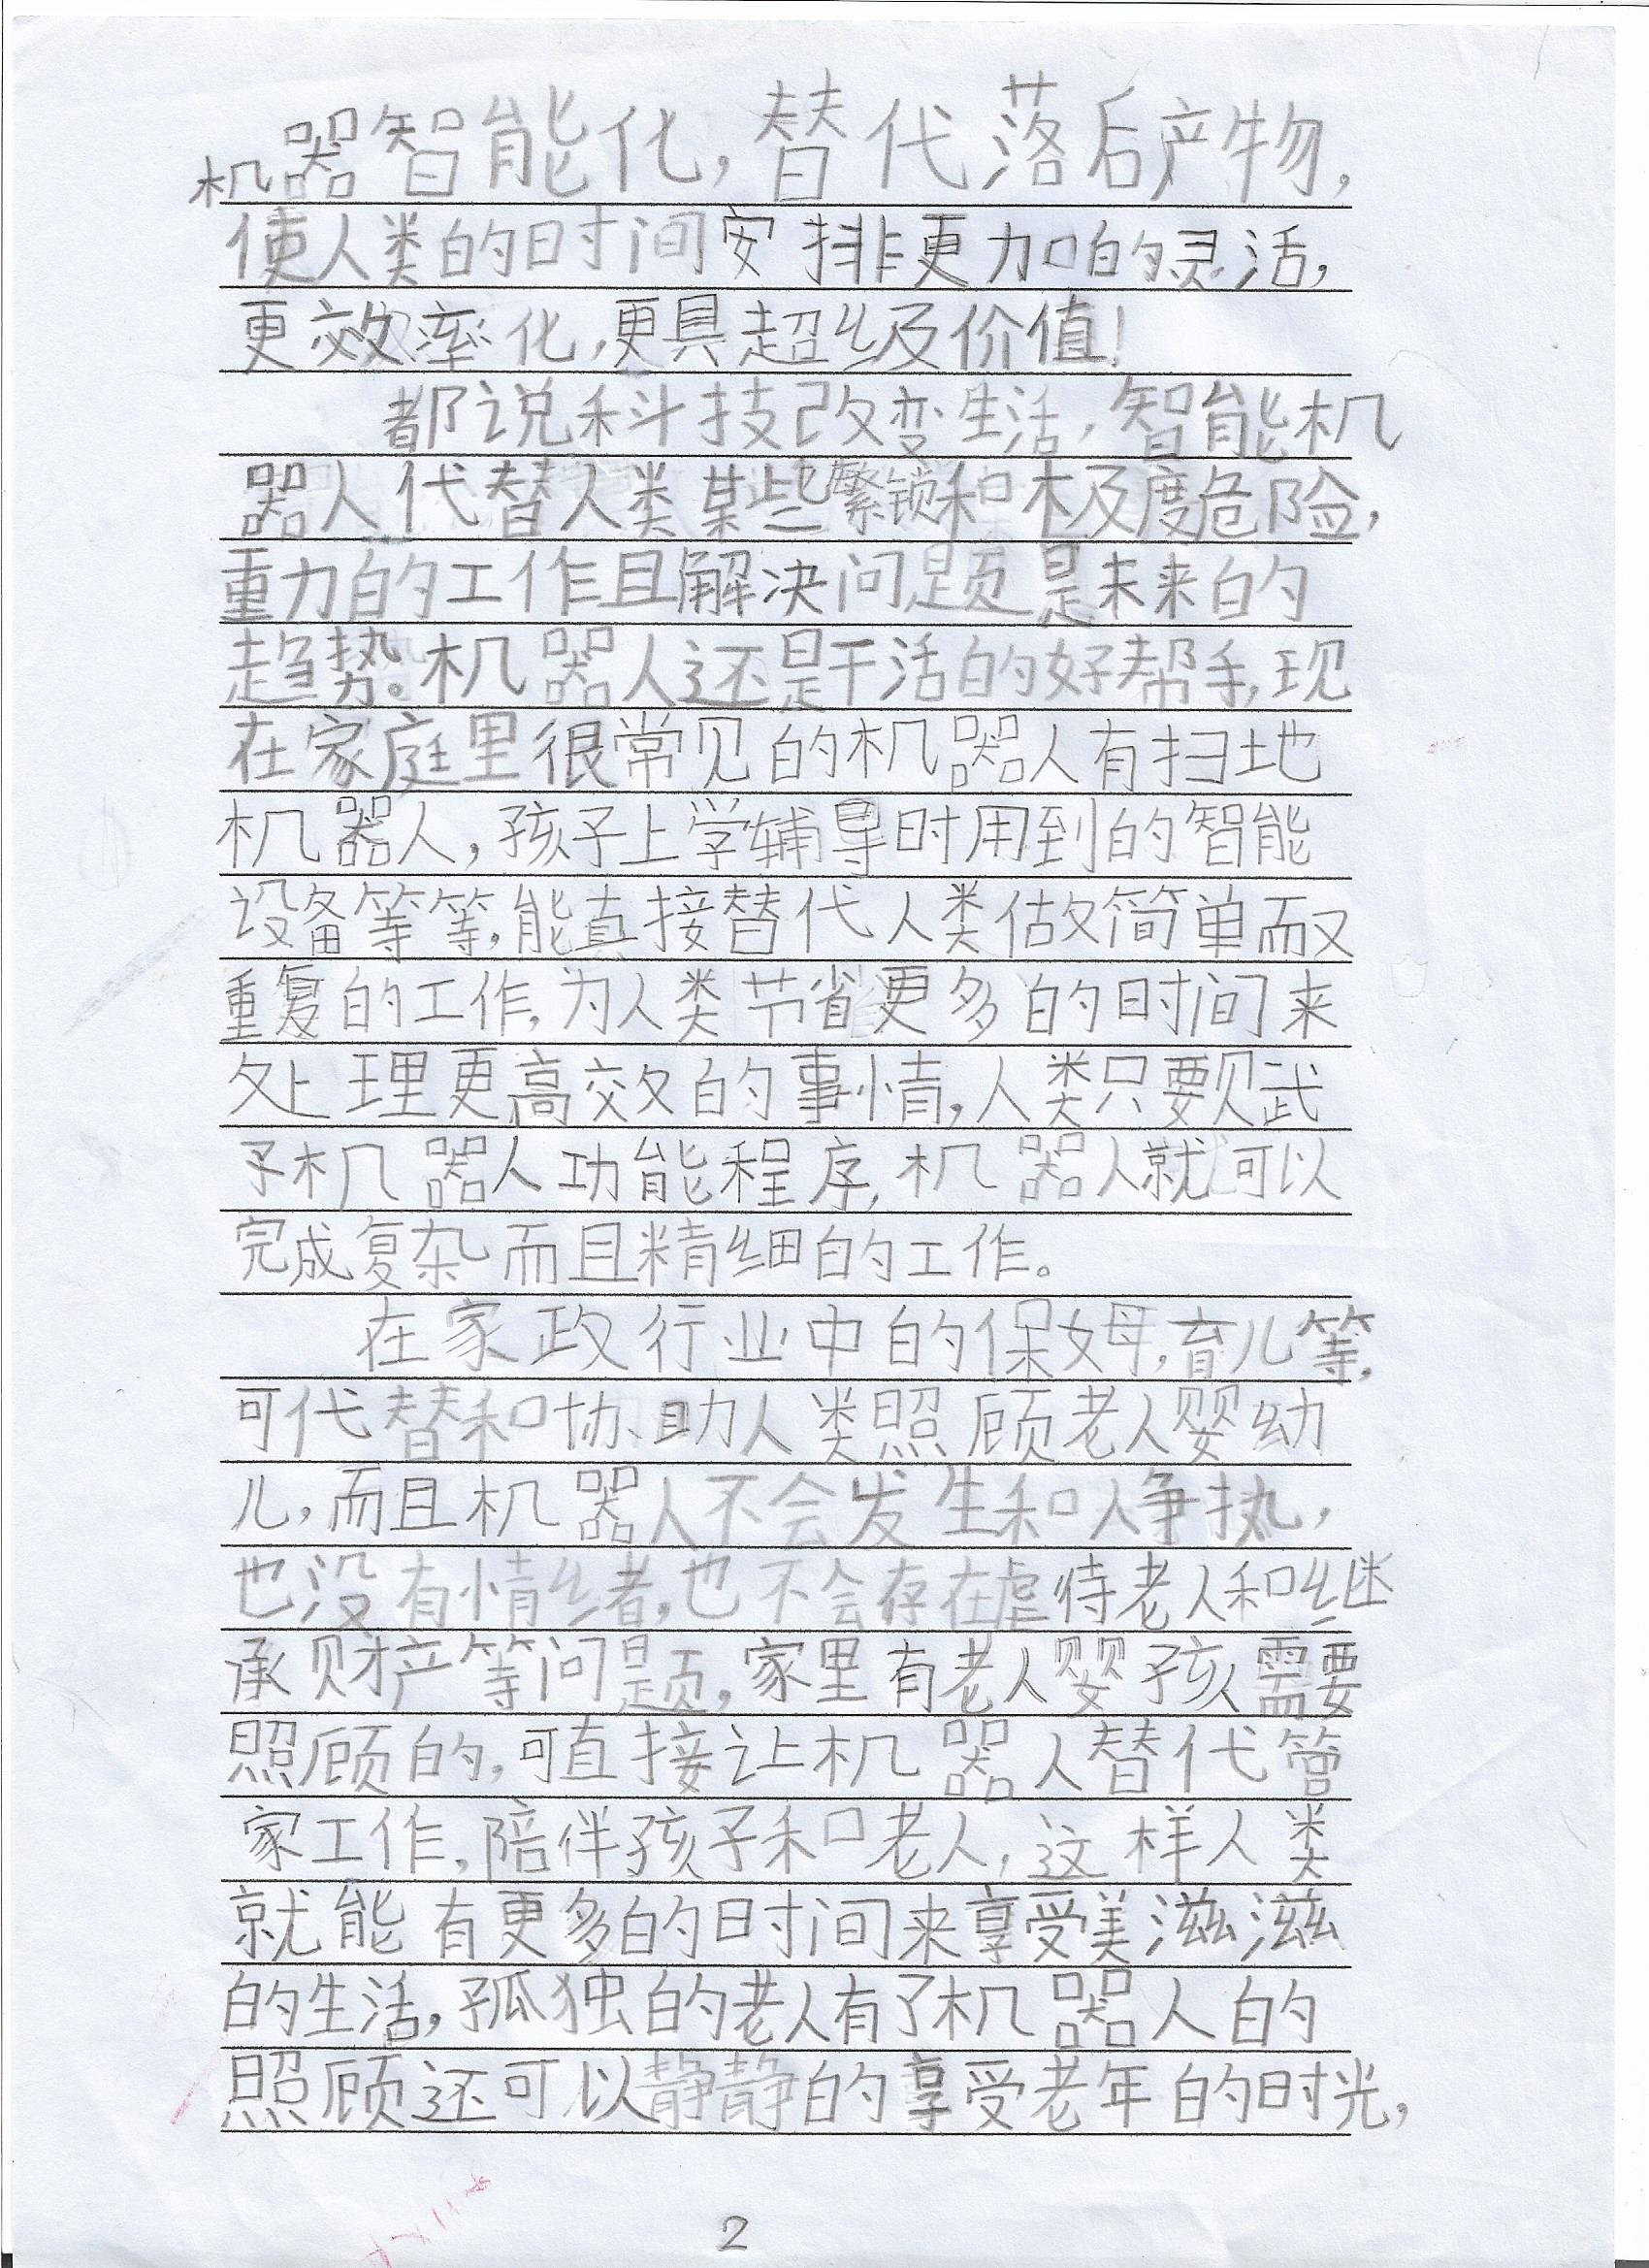 机器智能化，替代落后产物，
使人类的时间安排更加的灵活，
更效率化，更具超级价值！
都说科技改变生活，智能机
器人代替人类某些繁锁和极度危险，
重力的工作且解决问题是未来的
趋势。机器人还是干活的好帮手，现
在家庭里很常见的机器人有扫地
机器人，孩子上学辅导时用到的智能
设备等等，能直接替代人类做简单而又
重复的工作，为人类节省更多的时间来
处理更高效的事情，人类只要赋
予机器人功能程序，机器人就可以
完成复杂而且精细的工作。
在家政行业中的保姆，育儿等，
可代替和协助人类照顾老人婴幼
儿，而且机器人不会发生和人争执，
也没有情绪者，也不会存在虐待老人和继
承财产等问题，家里有老人婴孩需要
照顾的，可直接让机器人替代管
家工作，陪伴孩子和老人，这样人类
就能有更多的时间来享受美滋滋
的生活，孤独的老人有了机器人的
照顾还可以静静的享受老年的时光，
2